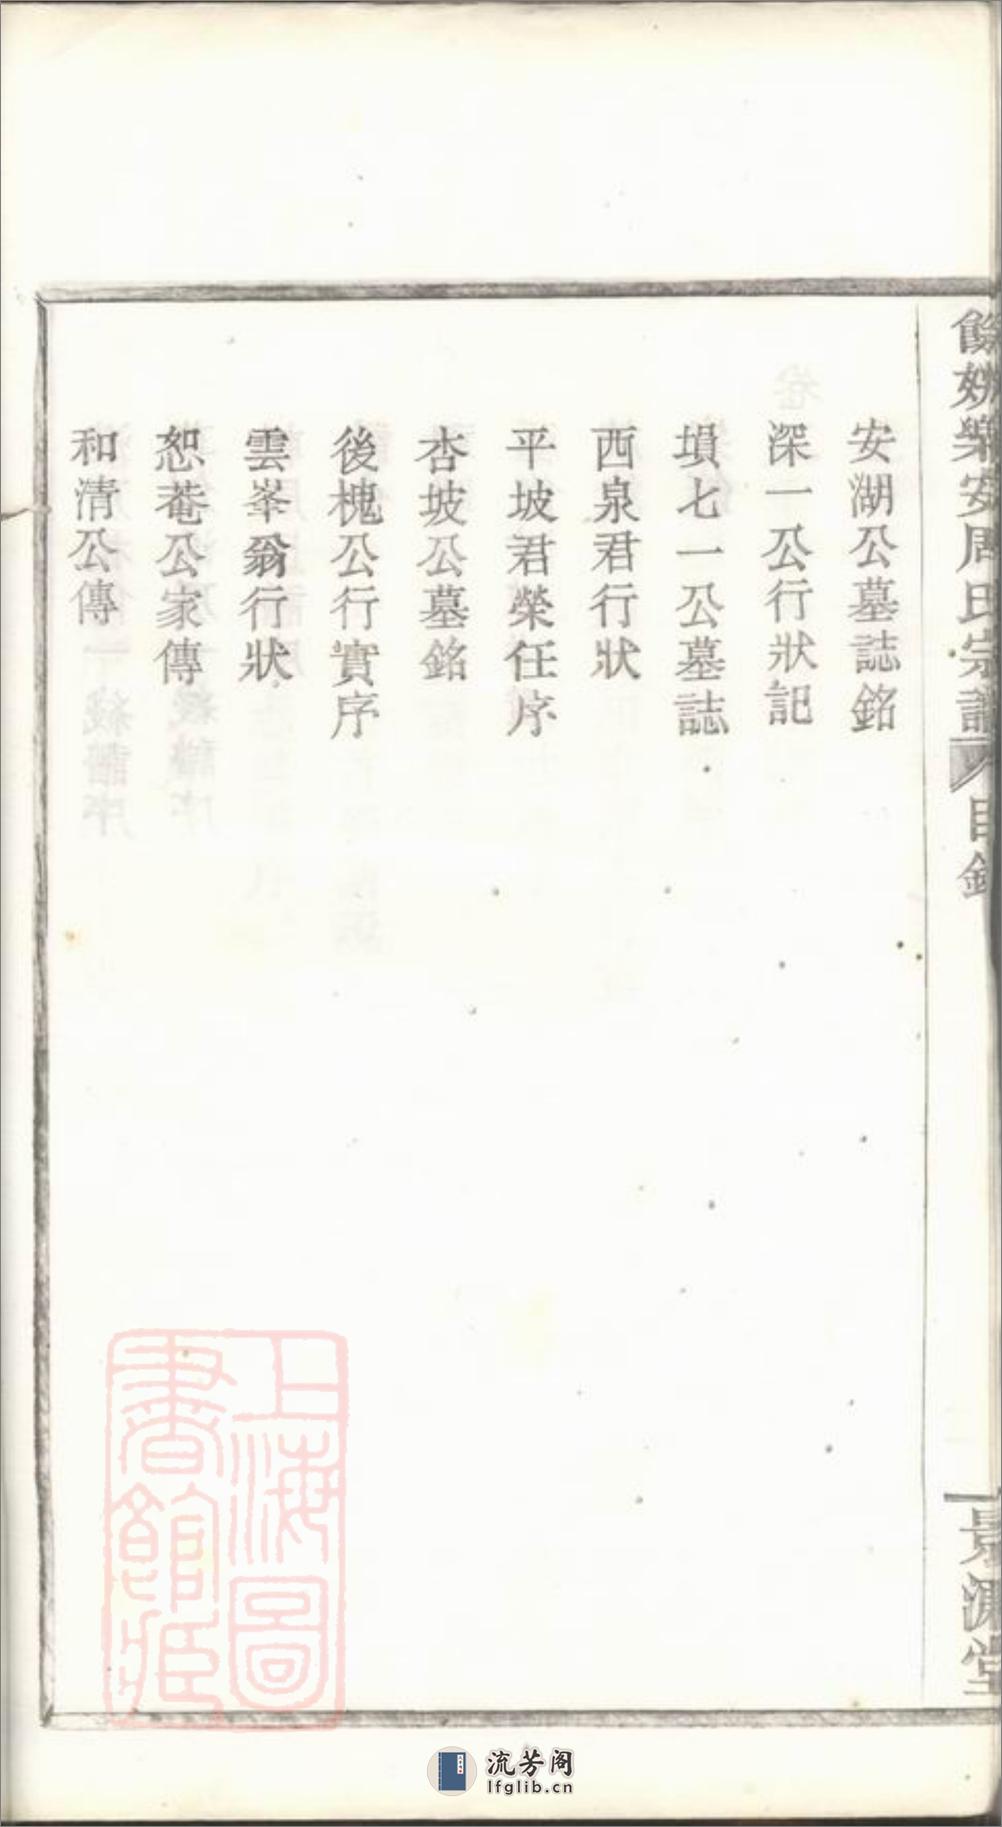 餘姚樂安周氏宗譜 目錄
景濂堂
安湖公墓誌銘
深一公行狀記
塤七一公墓誌
西泉君行狀
平坡君榮任序
杏坡公墓銘
後槐公行實序
雲峯翁行狀
恕菴公家傳
和清公傳
上海圖
書館藏
流芳阁
lfglib.cn